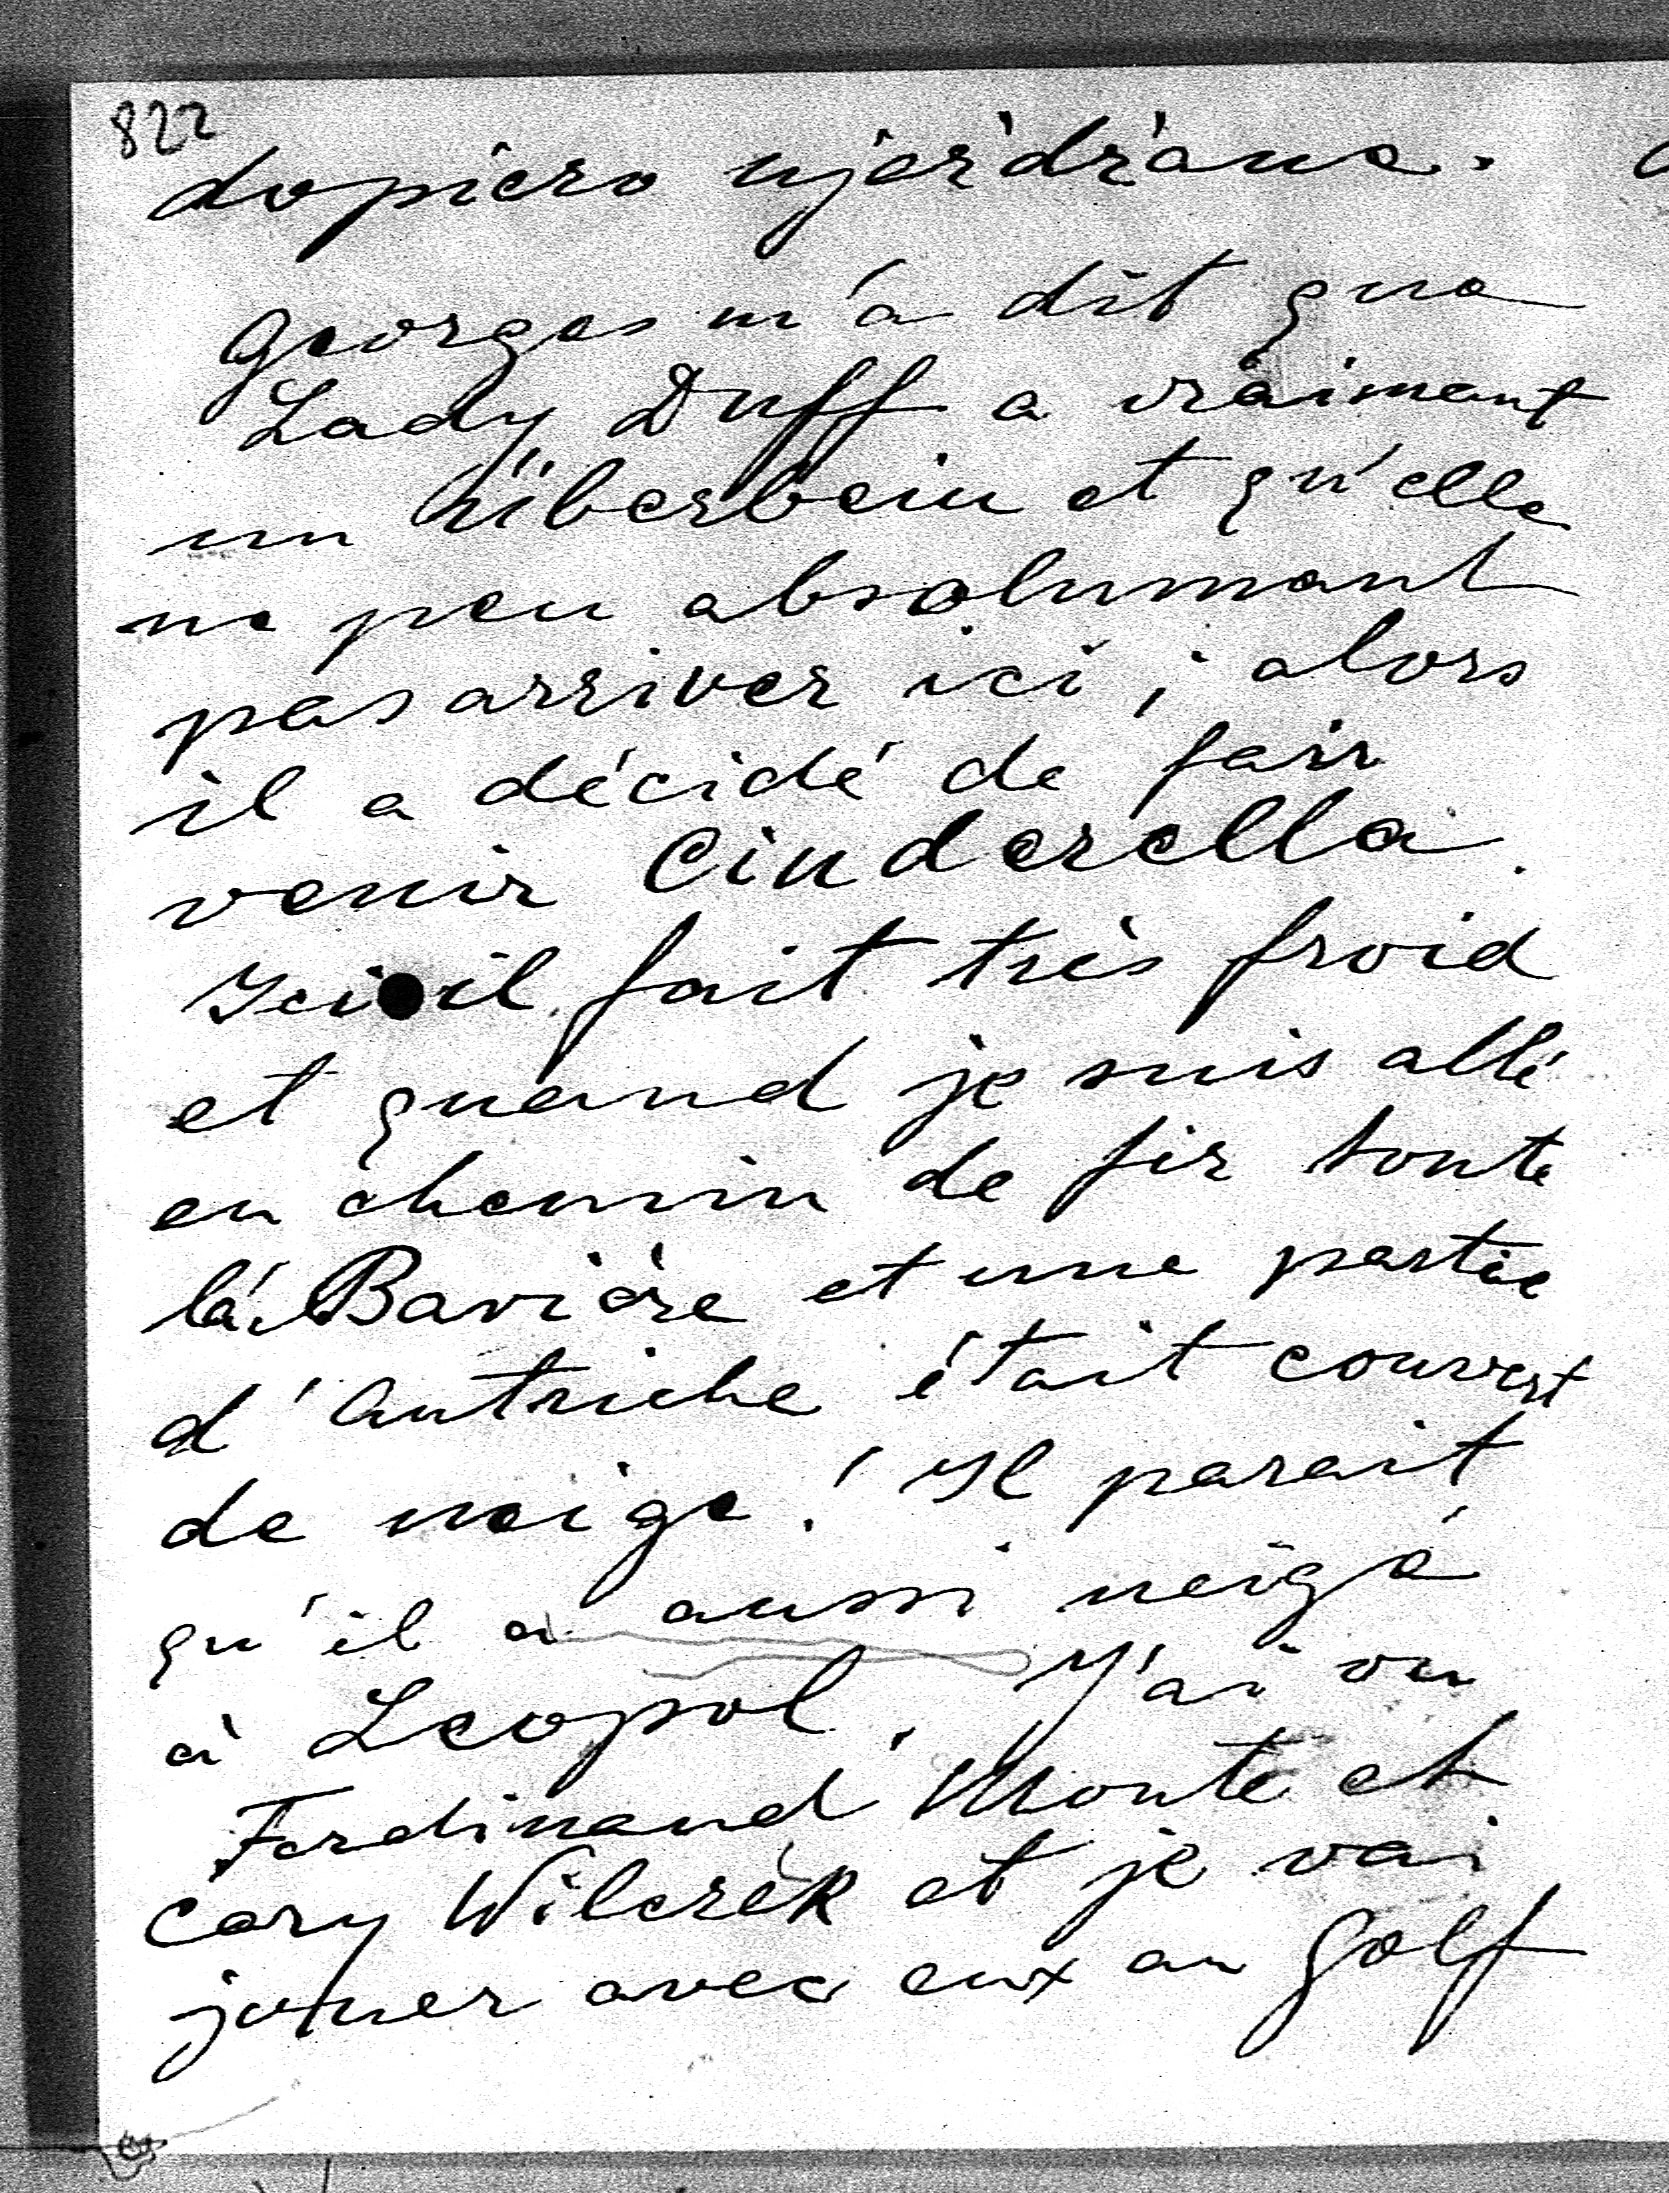 822
dopiero ujeżdżane.
Georges m'a dit que
Lady Duff a vraimant
un überbein et qu'elle
ne peu absolumant
pas arriver ici ; alors
il a décidé de fair
venir Cinderella.
Ici il fait très froid
et quand je suis allé
en chemin de fer toute
la Bavière et une partie
d'Autriche était couvert
de neige ! Il parait
qu'il a aussi neigé
à Leopol. J'ai vu
Ferdinand Monte et
Cary Wilczek et je vai
jouer avec eux au Golf